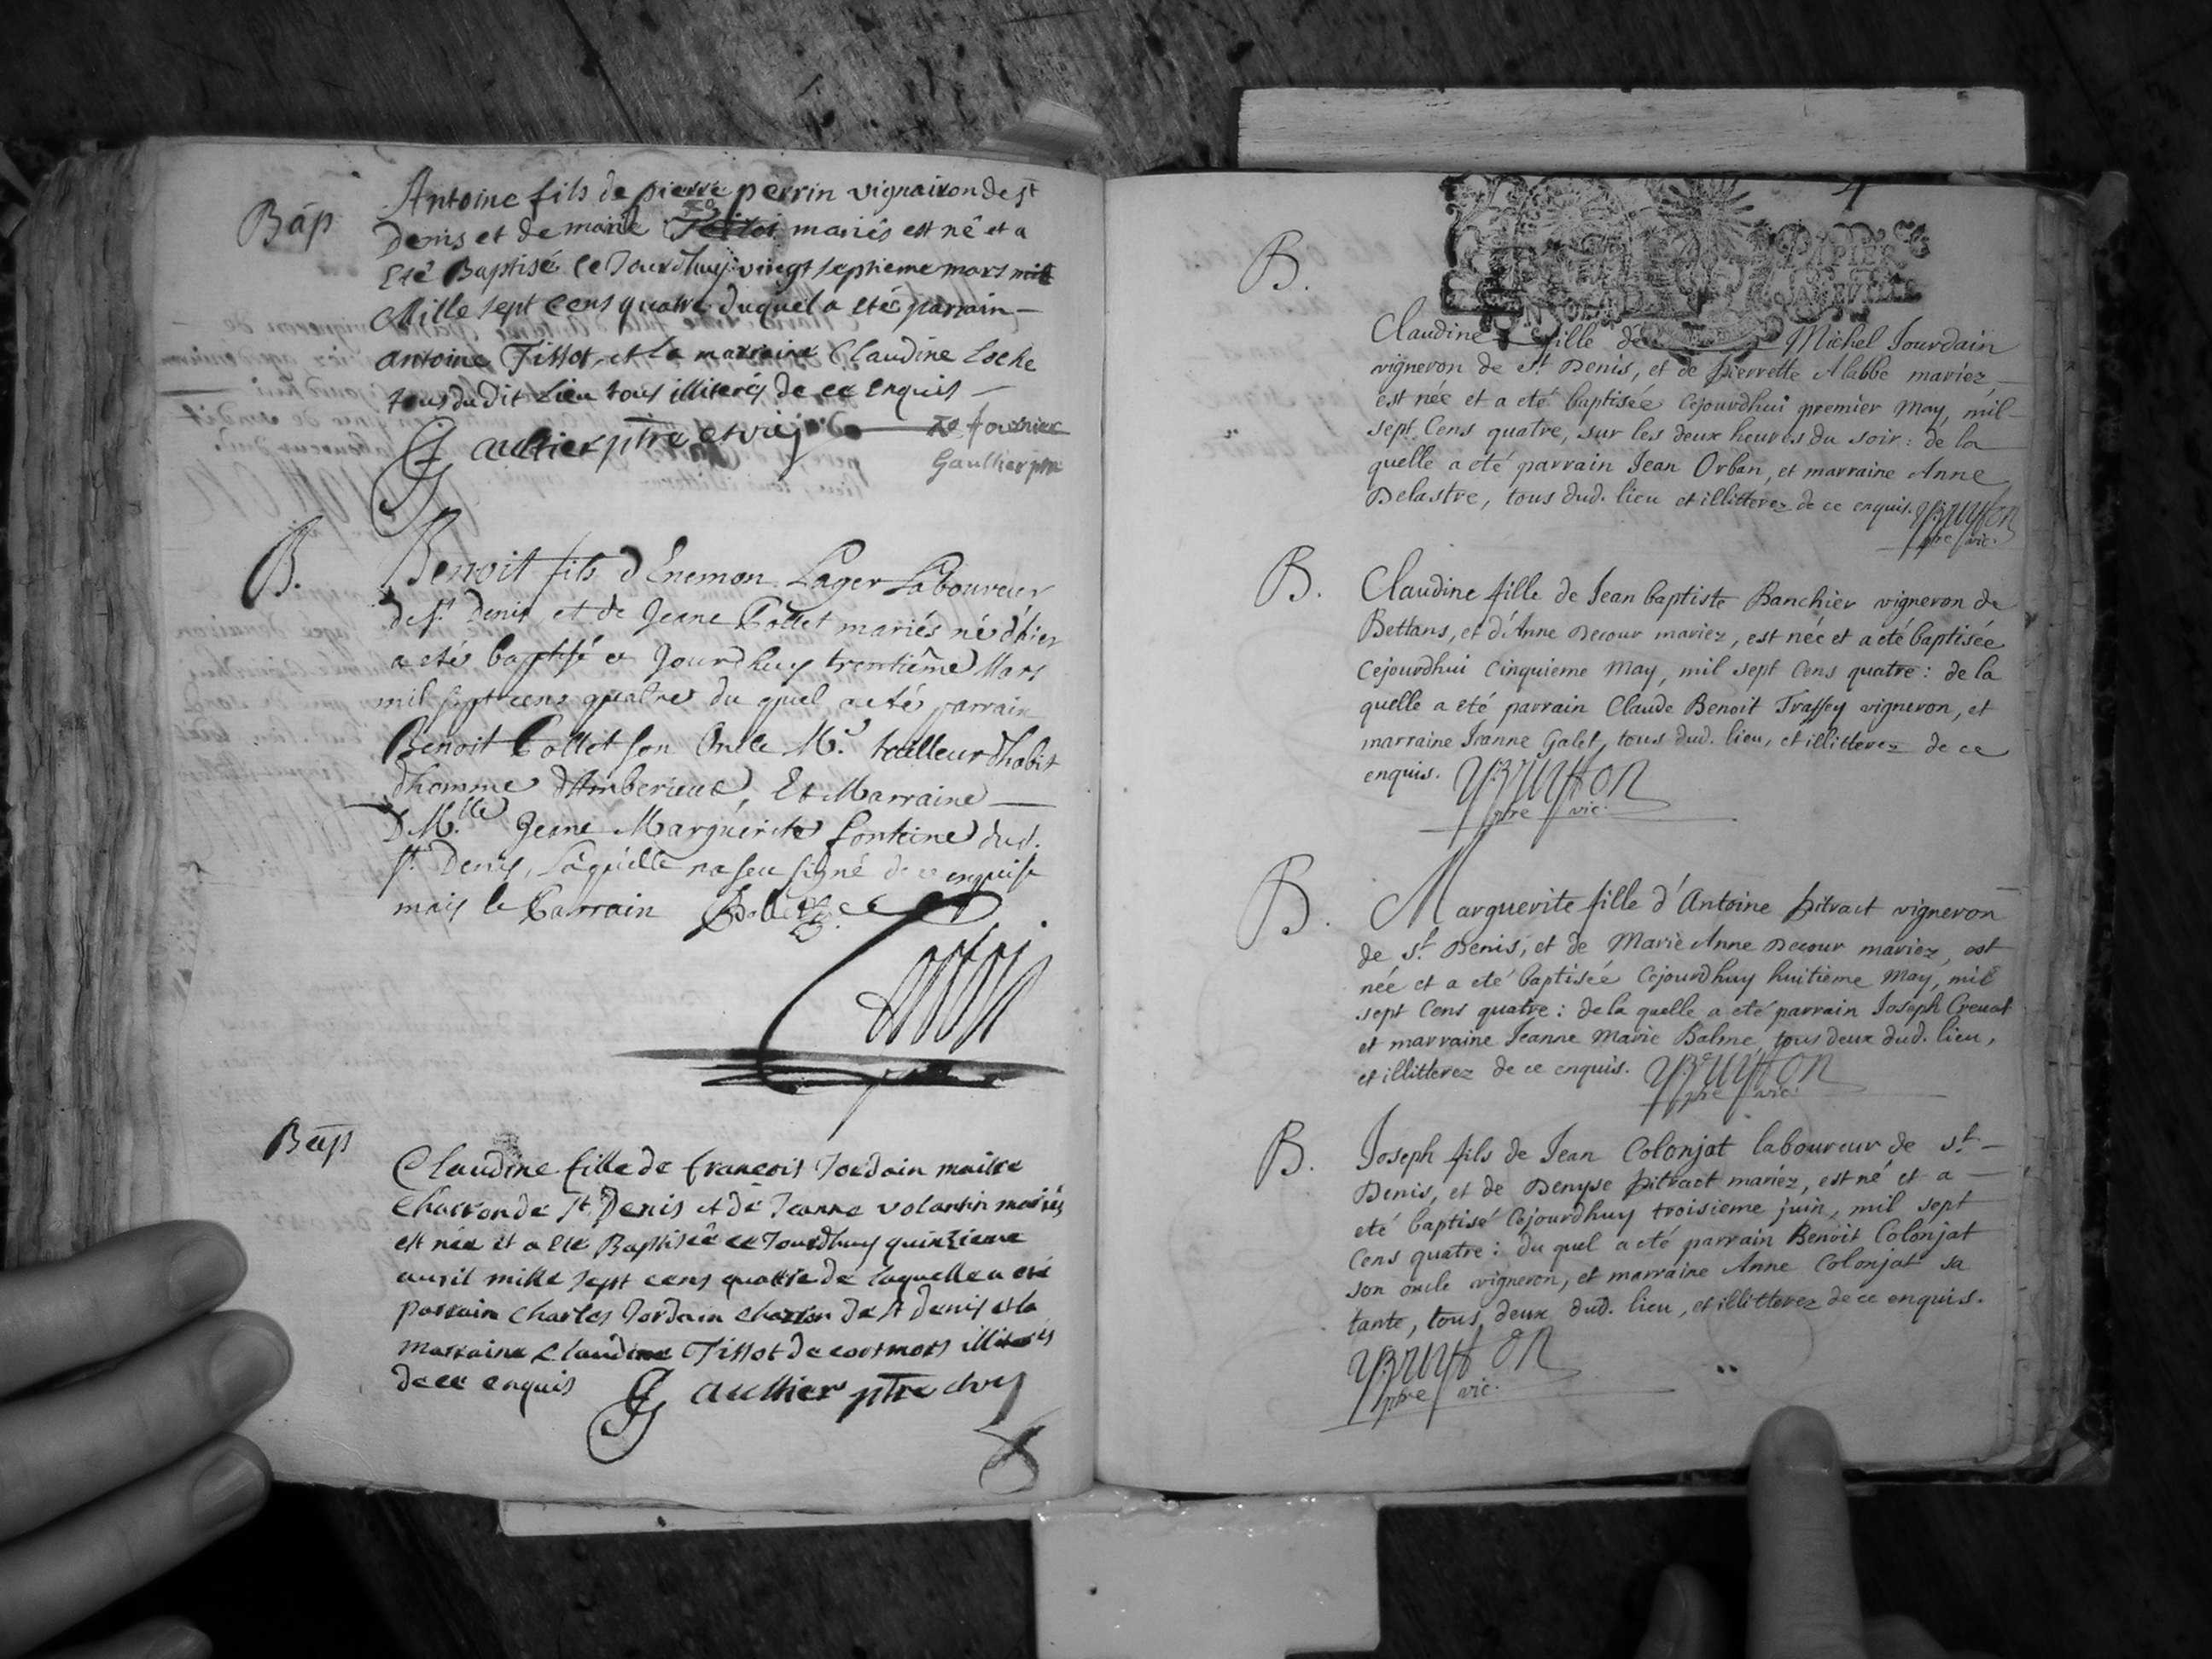 Bap
Antoine fils de pierre perrin vignairon de st
Denis et de marie mariés est né et a
Eté Baptisé ce Jourdhuy vingt septieme mars
Mille sept cens quatre duquel a eté parrain
antoine Tissot et la marraine Claudine Loche
tous du dit Lieu tous illiterés de ce Enquis
Gaulthier ptre et vic
fournier
Gaulthier ptre
B.
Benoit fils d'Enemon Lager Laboureur
de st Denis, et de Jeane Collet mariés né d'hier
a eté baptisé ce Jourdhuy trentiême Mars
mil sept cens quatre du quel a eté parrain
Benoit Collet son Oncle Mr. tailleur d'habit
d'homme d'Amberieux, Et Marraine
D Mlle Jeane Marguerite fontaine dud.
st Denis, Laquelle na seu signé de ce enquise
mais le Parrain
Bap
Claudine fille de francois Jordain maitre
Charron de st Denis et de Jeanne volantin mariés
est née et a eté Baptisée ce Jourdhuy quinzieme
auril mille sept cens quattre de laquelle a eté
parrain Charles Jordain charron de st denis et la
marraine Claudine Tissot de cormors illiterés
de ce enquis Gaulthier ptre et vic
4
PAPIER
B.
Claudine fille de Michel Jourdain
vigneron de St Denis, et de pierrette Alabbe mariez,
est née et a eté baptisée Cejourdhui premier may, mil
sept Cens quatre, sur les deux heures du soir : de la
quelle a eté parrain Jean Orban, et marraine Anne
Delastre, tous dud. lieu et illitterez de ce enquis. Bruyson
pre vic.
B.
Claudine fille de Jean baptiste Banchier vigneron de
Bettans, et d'Anne Decour mariez, est née et a eté baptisée
Cejourdhui Cinquieme may, mil sept Cens quatre : de la
quelle a eté parrain Claude Benoit Traffey vigneron, et
marraine Jeanne Galet, tous dud. lieu, et illitterez de ce
enquis. Bruyson
pre vic.
B.
Marguerite fille d'Antoine pitract vigneron
de St Denis, et de Marie Anne Decour mariez, est
née et a eté baptisée Cejourdhuy huitieme may, mil
sept Cens quatre : de la quelle a eté parrain Joseph Creuat
et marraine Jeanne Marie Balme, tous deux dud. lieu,
et illitterez de ce enquis. Bruyson
pre vic.
B.
Joseph fils de Jean Colonjat laboureur de St
Denis, et de Denyse pitract mariez, est né et a
eté baptisé Cejourdhuy troisieme juin, mil sept
Cens quatre : du quel a eté parrain Benoit Colonjat
son oncle vigneron, et marraine Anne Colonjat sa
tante, tous deux dud. lieu, et illitterez de ce enquis.
Bruyson
pre vic.